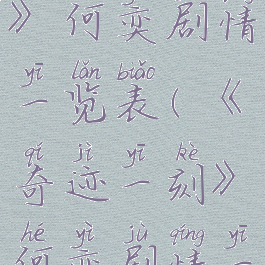 》何奕剧情
yī lǎn biǎo
一览表(《
qí jì yī kè
奇迹一刻》
hé yì jù qíng yī
何奕剧情一